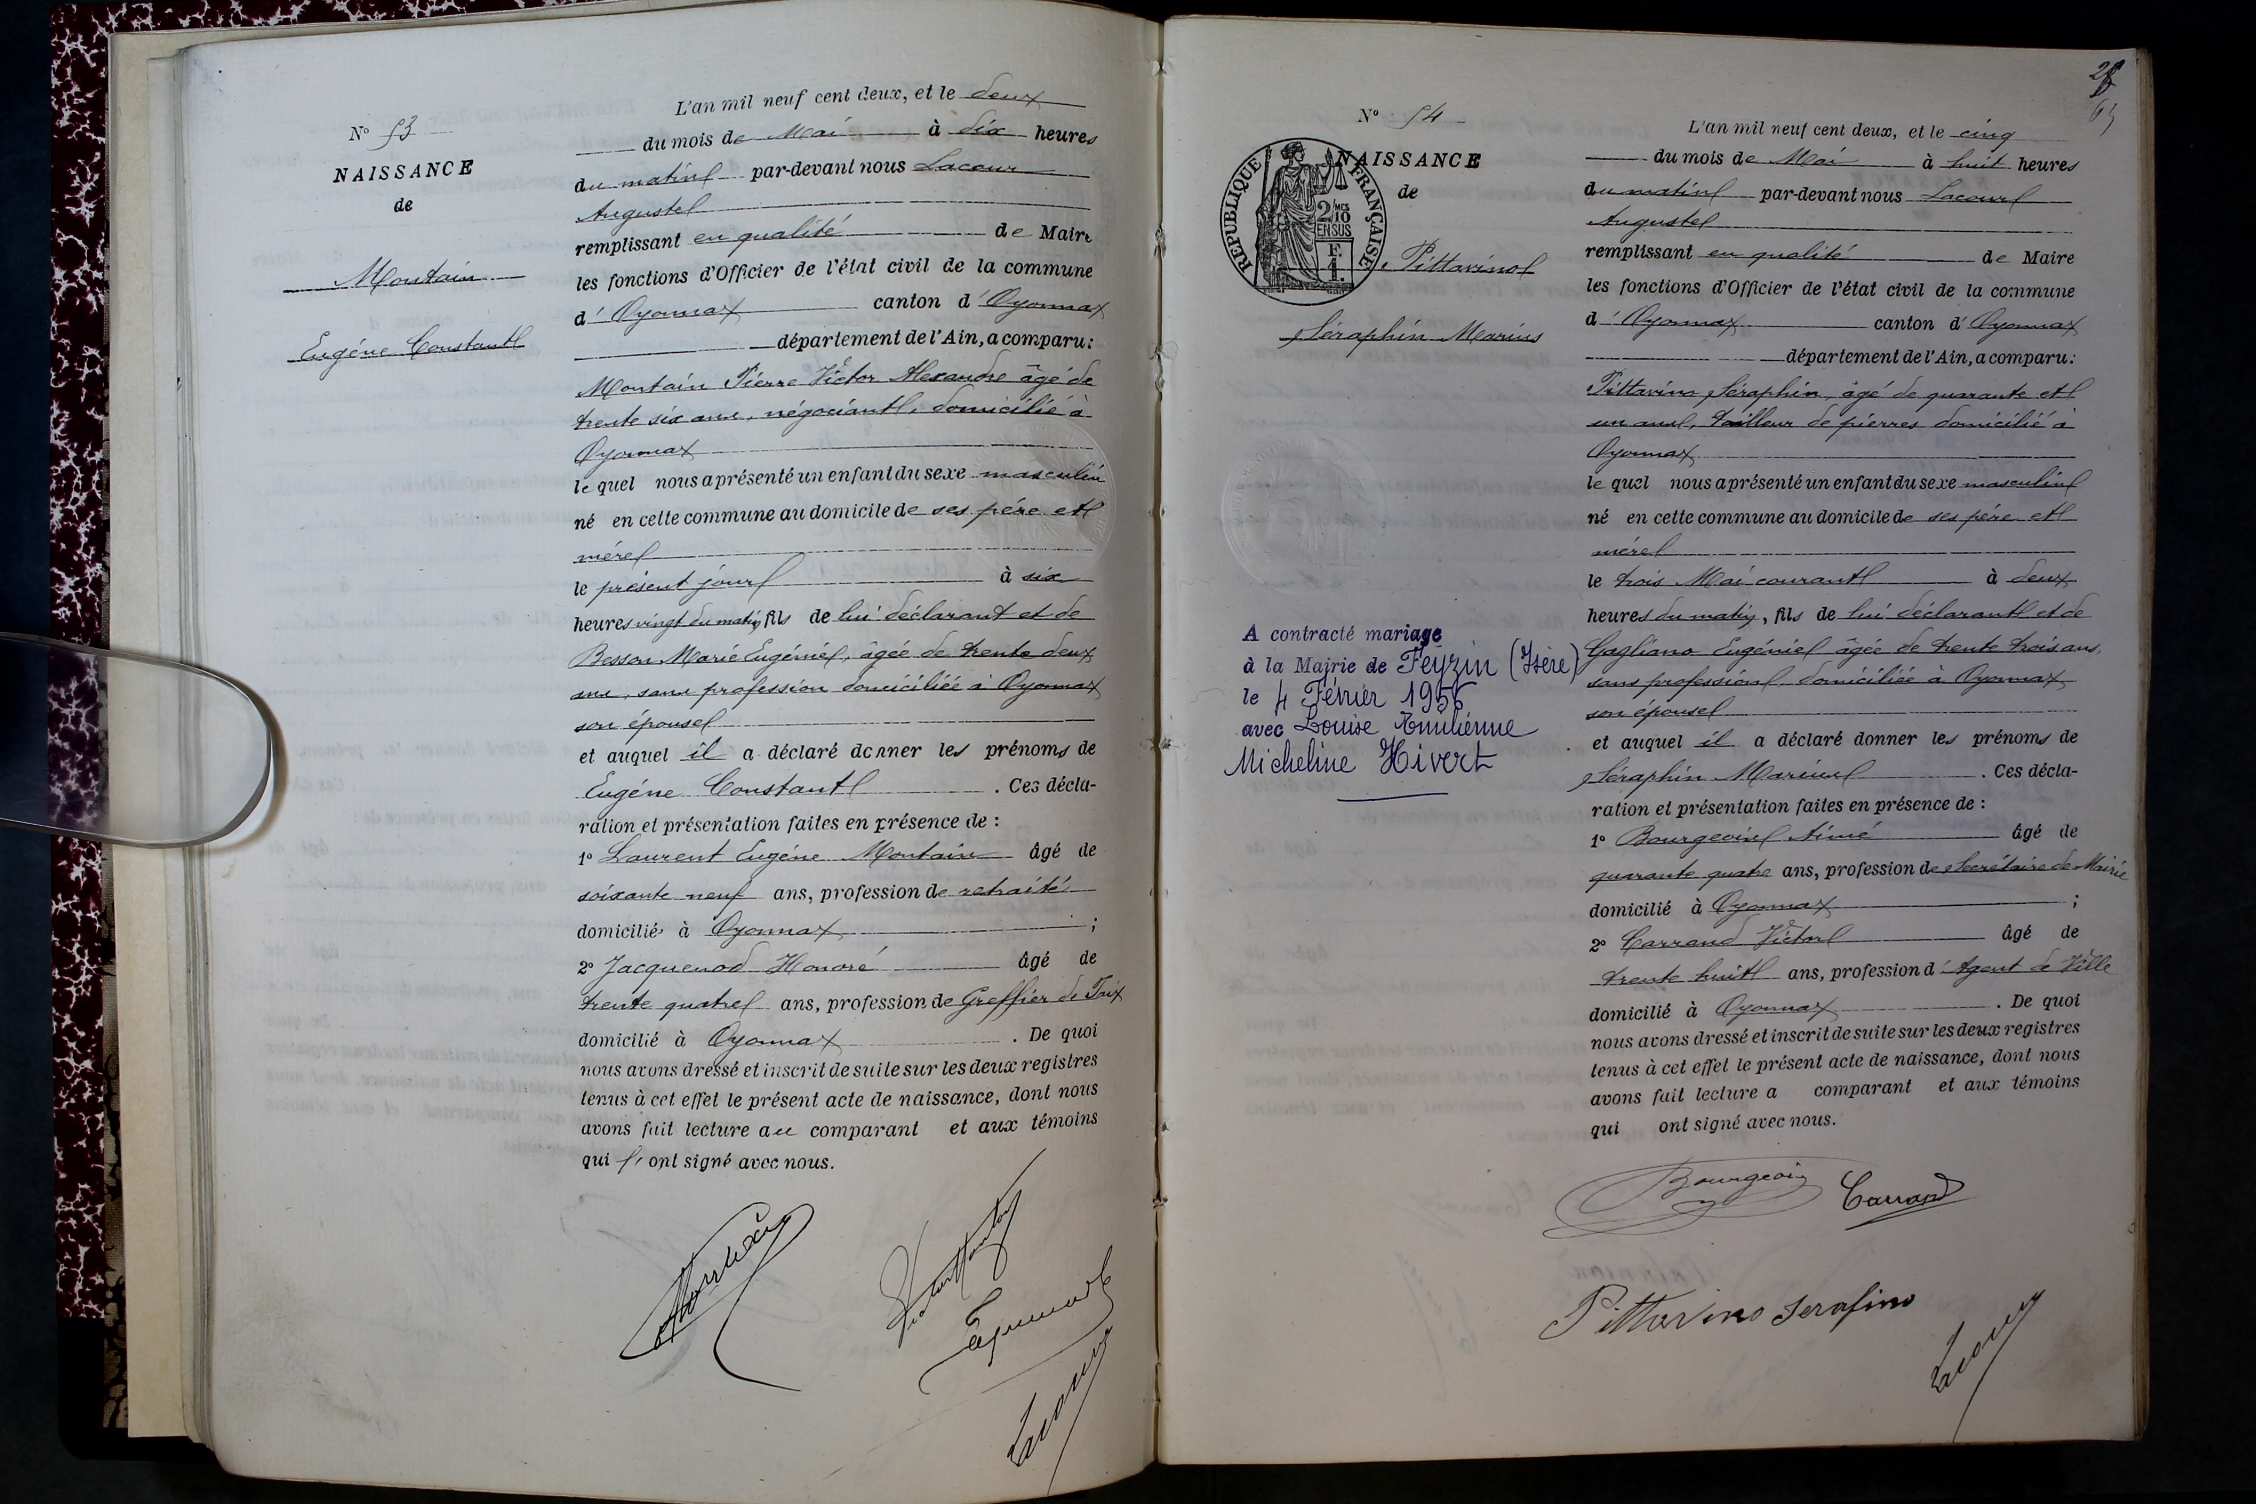 N° 53
NAISSANCE
de
Montain
Eugéne Constant
L'an mil neuf cent deux, et le deux
du mois de Mai à six heures
du matin par-devant nous Lacour
Auguste
remplissant en qualité de Maire
les fonctions d'Officier de l'état civil de la commune
d' Oyonnax canton d' Oyonnax
département de l'Ain, a comparu:
Montain Pierre Victor Alexandre âgé de
trente six ans, négociant, domicilié à
Oyonnax
le quel nous a présenté un enfant du sexe masculin
né en cette commune au domicile de ses pére et
mére
le présent jour à six
heures vingt du matin, fils de lui déclarant et de
Besson Marie Eugénie, âgée de trente deux
ans, sans profession domiciliée à Oyonnax
son épouse
et auquel il a déclaré donner les prénoms de
Eugéne Constant . Ces décla-
ration et présentation faites en présence de :
1° Laurent Eugéne Montain âgé de
soixante neuf ans, profession de retraité
domicilié à Oyonnax ;
2° Jacquenod Honoré âgé de
trente quatre ans, profession de Greffier de Paix
domicilié à Oyonnax . De quoi
nous avons dressé et inscrit de suite sur les deux registres
tenus à cet effet le présent acte de naissance, dont nous
avons fait lecture au comparant et aux témoins
qui ont signé avec nous.
Lacour
28
N° 54
NAISSANCE
de
RÉPUBLIQUE FRANÇAISE
2/10 MES
EN SUS
F.
1.
Pittavino
Séraphin Marius
A contracté mariage
à la Mairie de Feyzin (Isère)
le 4 Février 1956
avec Louise Emilienne
Micheline Hivert
L'an mil neuf cent deux, et le cinq
du mois de Mai à huit heures
du matin par-devant nous Lacour
Auguste
remplissant en qualité de Maire
les fonctions d'Officier de l'état civil de la commune
d' Oyonnax canton d' Oyonnax
département de l'Ain, a comparu:
Pittavino Séraphin, âgé de quarante et
un ans, tailleur de pierres domicilié à
Oyonnax
le quel nous a présenté un enfant du sexe masculin
né en cette commune au domicile de ses pére et
mére
le trois Mai courant à deux
heures du matin, fils de lui déclarant et de
Gagliano Eugénie âgée de trente trois ans,
sans profession domiciliée à Oyonnax
son épouse
et auquel il a déclaré donner les prénoms de
Séraphin Marius . Ces décla-
ration et présentation faites en présence de :
1° Bourgeois Aimé âgé de
quarante quatre ans, profession de Secrétaire de Mairie
domicilié à Oyonnax ;
2° Carrand Victor âgé de
trente huit ans, profession d' Agent de Ville
domicilié à Oyonnax . De quoi
nous avons dressé et inscrit de suite sur les deux registres
tenus à cet effet le présent acte de naissance, dont nous
avons fait lecture a comparant et aux témoins
qui ont signé avec nous.
Bourgeois Carrand
Pittavino Serafino
Lacour